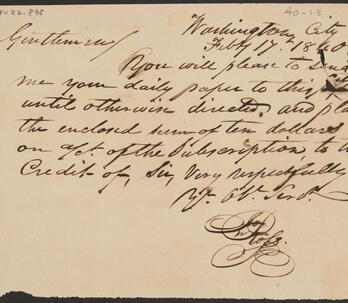 40-13
Washington City
Feby 17th 1840
Gentlemen
You will please to send
me your daily paper to this
until otherwise directed. and
the enclosed sum of ten dollars
on act. of the Subscription, to the
Credit of, Sir, Very respectfully
Yr. Obt. Servt.
Jno Ross.